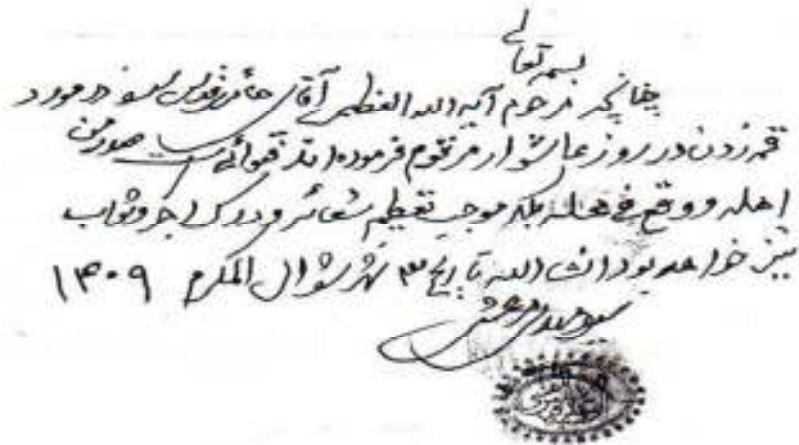 بسمه تعالی
چنانچه مرحوم آیه الله العظمی آقای حائری قدس سره در مورد
قمه زدن در روز عاشورا مرقوم فرموده اند فتوائی است صدر من
اهله و وقع فی محله بلکه موجب تعظیم شعائر و درک اجر و ثواب
نیز خواهد بود انشاء الله تاریخ ۳ شهر شوال المکرم ۱۴۰۹
سید مهدی مرعشی